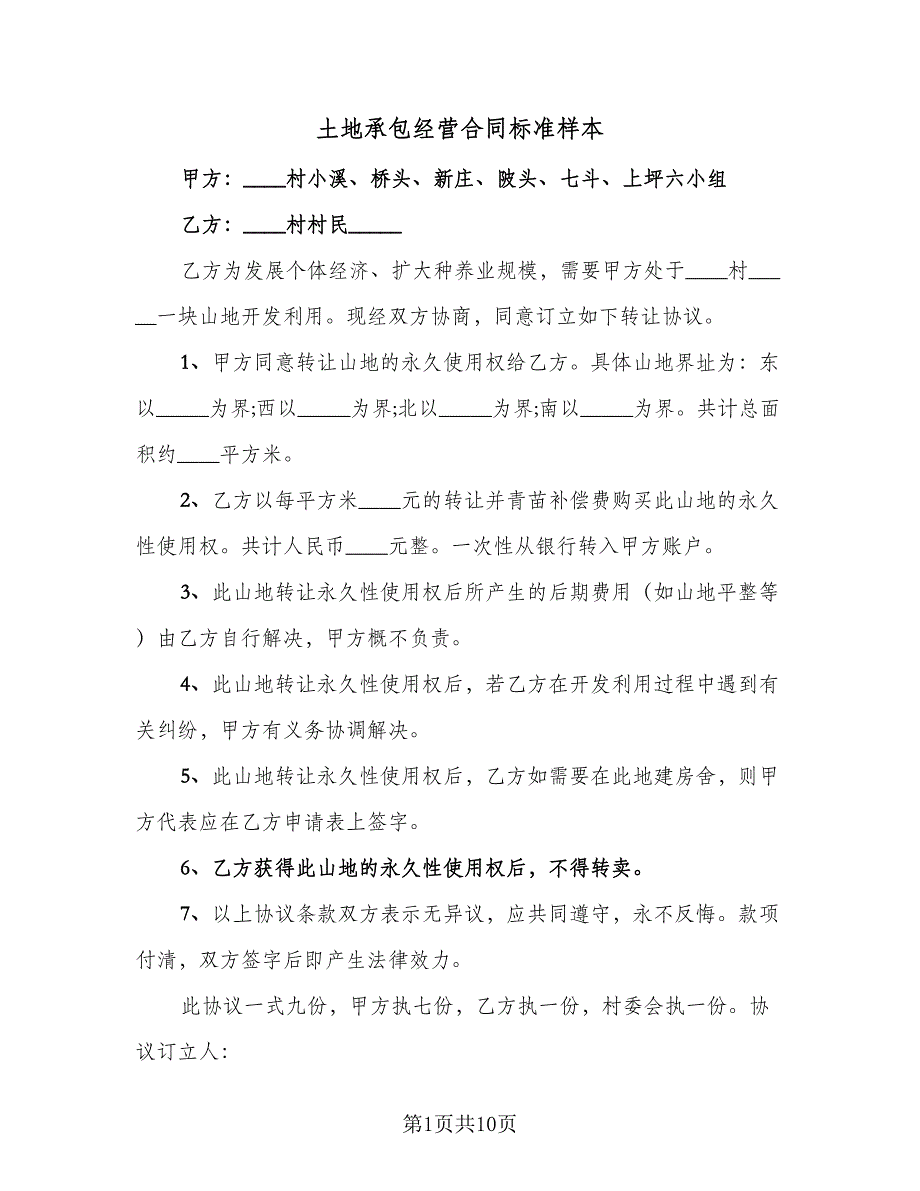 土地承包经营合同标准样本
甲方：____村小溪、桥头、新庄、陂头、七斗、上坪六小组
乙方：____村村民_____
乙方为发展个体经济、扩大种养业规模，需要甲方处于____村___
__一块山地开发利用。现经双方协商，同意订立如下转让协议。
1、甲方同意转让山地的永久使用权给乙方。具体山地界址为：东
以_____为界;西以_____为界;北以_____为界;南以_____为界。共计总面
积约____平方米。
2、乙方以每平方米____元的转让并青苗补偿费购买此山地的永久
性使用权。共计人民币____元整。一次性从银行转入甲方账户。
3、此山地转让永久性使用权后所产生的后期费用（如山地平整等
）由乙方自行解决，甲方概不负责。
4、此山地转让永久性使用权后，若乙方在开发利用过程中遇到有
关纠纷，甲方有义务协调解决。
5、此山地转让永久性使用权后，乙方如需要在此地建房舍，则甲
方代表应在乙方申请表上签字。
6、乙方获得此山地的永久性使用权后，不得转卖。
7、以上协议条款双方表示无异议，应共同遵守，永不反悔。款项
付清，双方签字后即产生法律效力。
此协议一式九份，甲方执七份，乙方执一份，村委会执一份。协
议订立人：
第1页共10页